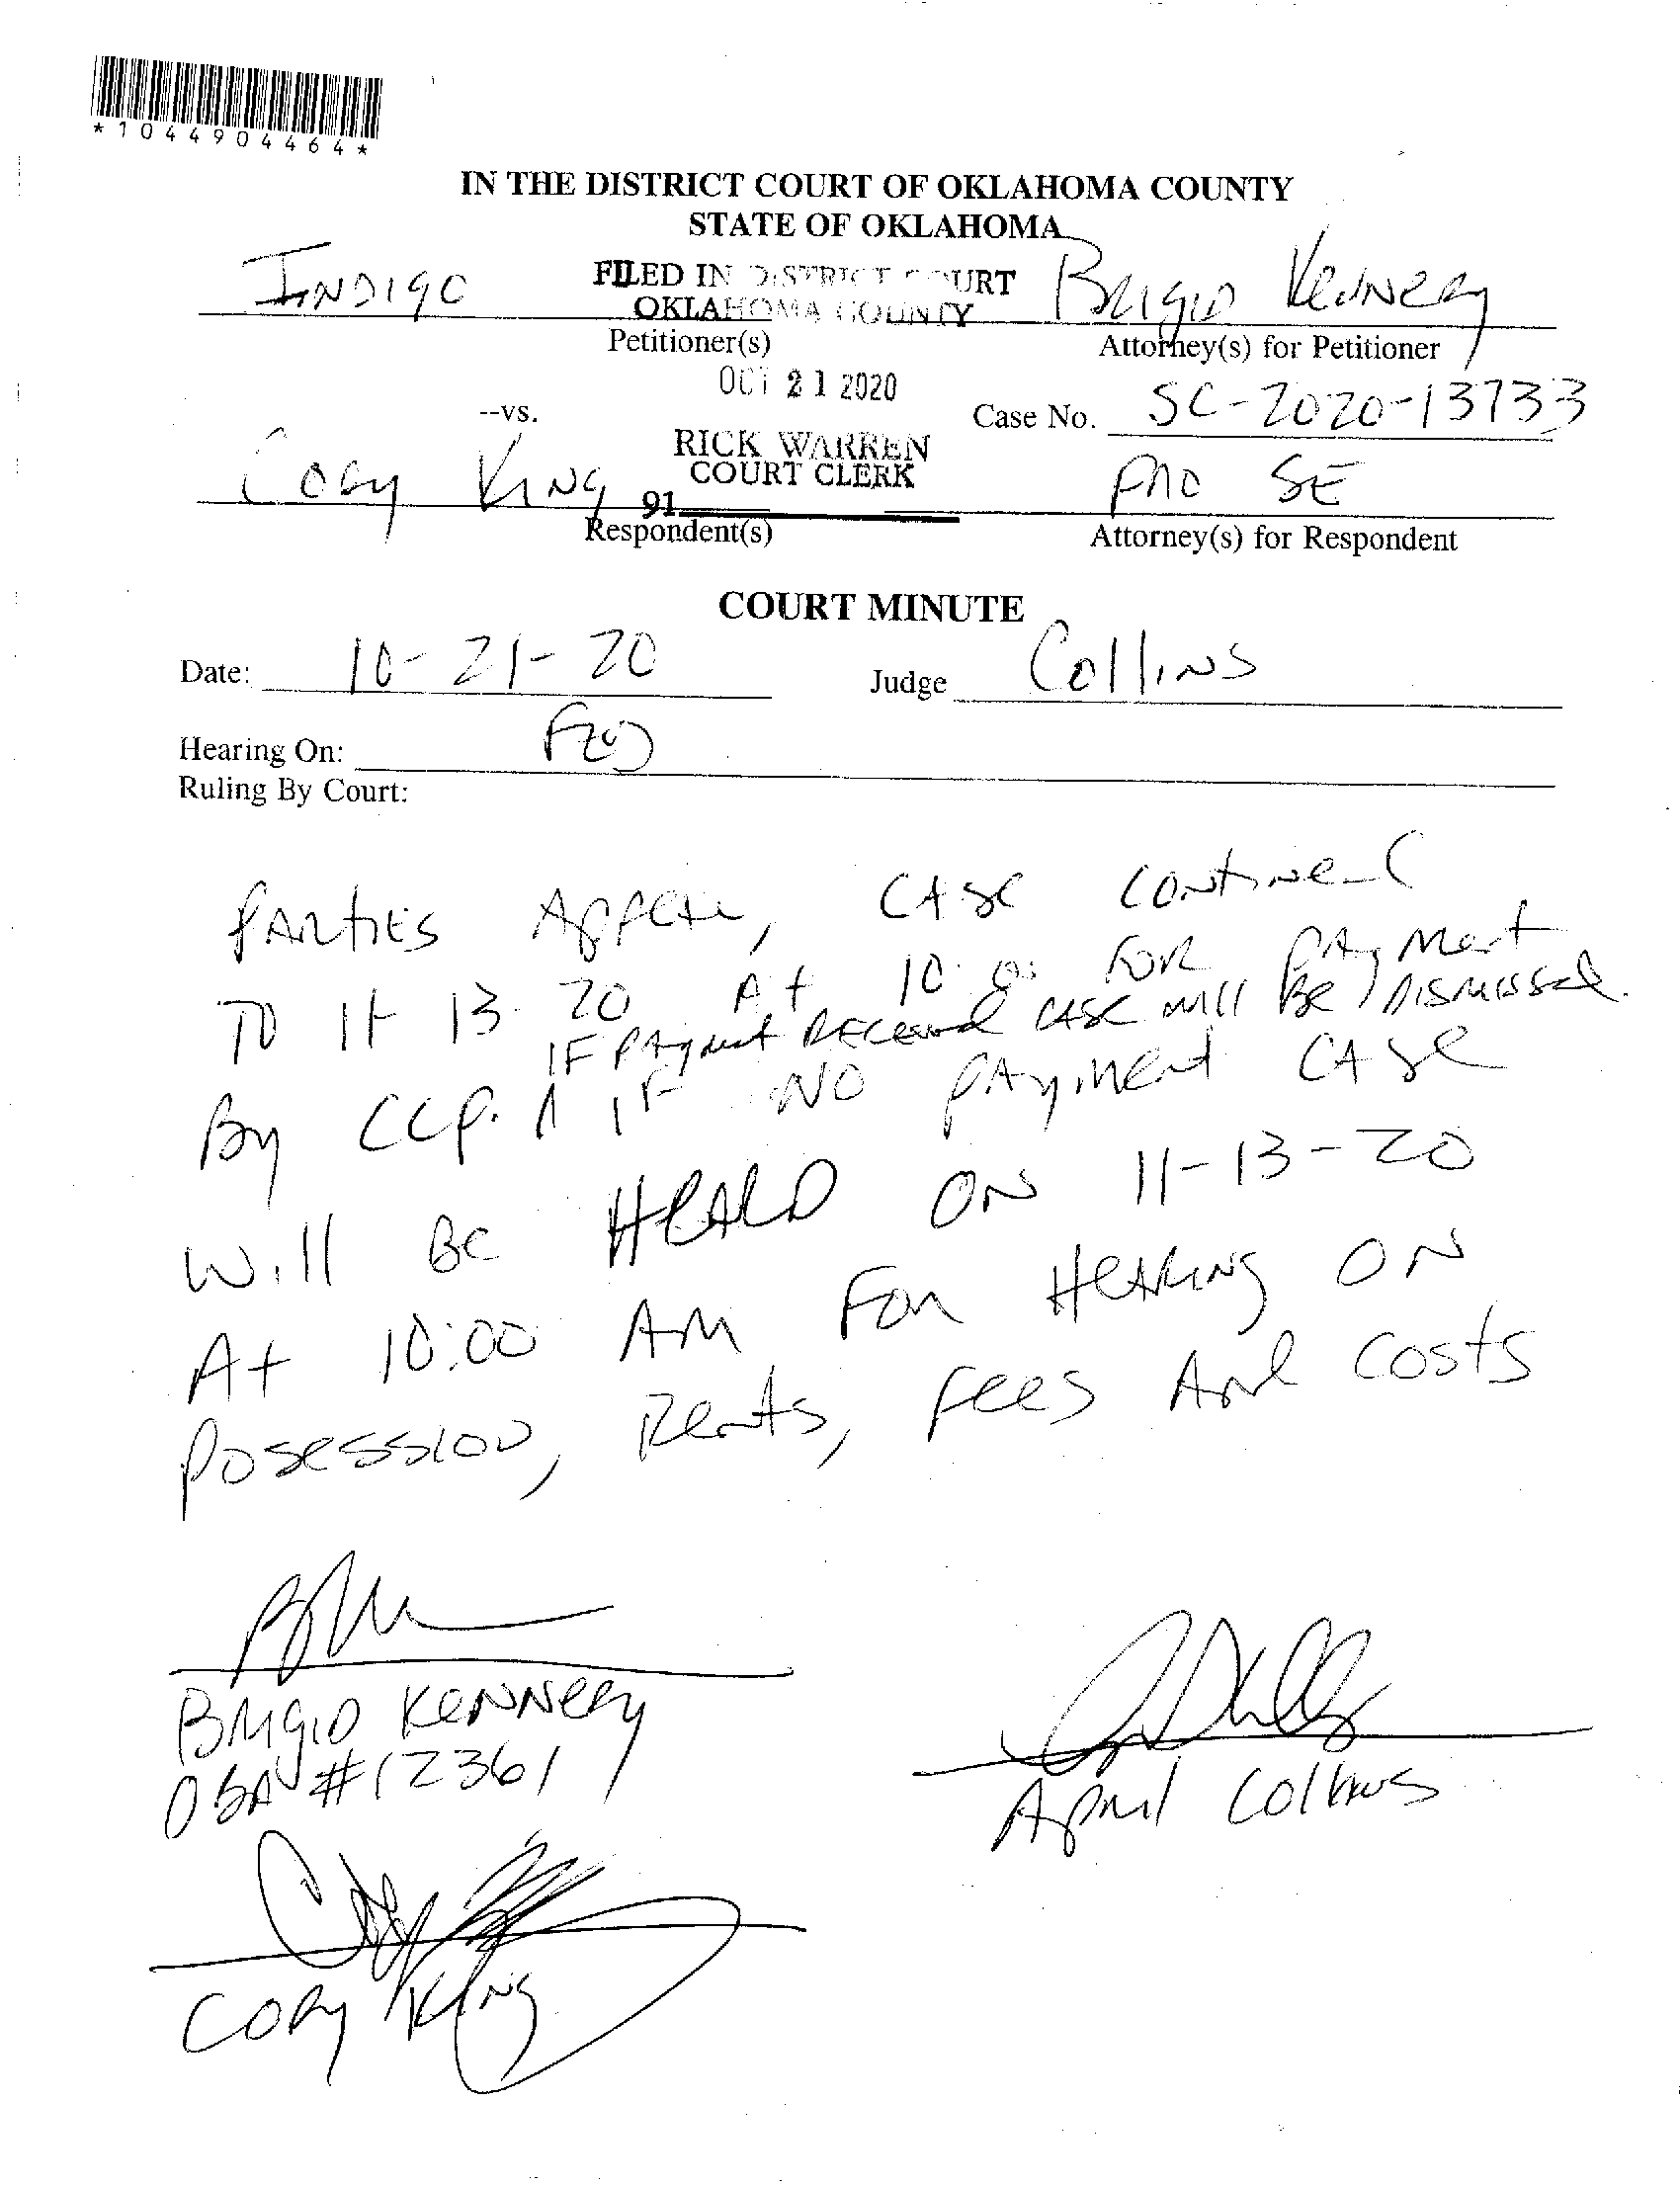 *1044904464*
IN THE DISTRICT COURT OF OKLAHOMA COUNTY
STATE OF OKLAHOMA
INDIGO
FILED IN DISTRICT COURT
OKLAHOMA COUNTY
Brigid Kennedy
Petitioner(s)
Attorney(s) for Petitioner
OCT 21 2020
--vs.
Case No. SC-2020-13733
RICK WARREN
COURT CLERK
Cory King
91
PRO SE
Respondent(s)
Attorney(s) for Respondent
COURT MINUTE
Date: 10-21-20
Judge Collins
Hearing On: FED
Ruling By Court:
PARTIES Appear, CASE Continued
TO 11-13-20 At 10:00 FOR PAYMent
IF PAYment RECeived CASE will Be DISMISSed.
By CCP. ∧ IF NO PAYMent CASE
Will Be HEARD ON 11-13-20
At 10:00 AM For HEARING ON
Posession, Rents, Fees And Costs
BRIGID KENNedy
OBA #12361
April Collins
Cory King